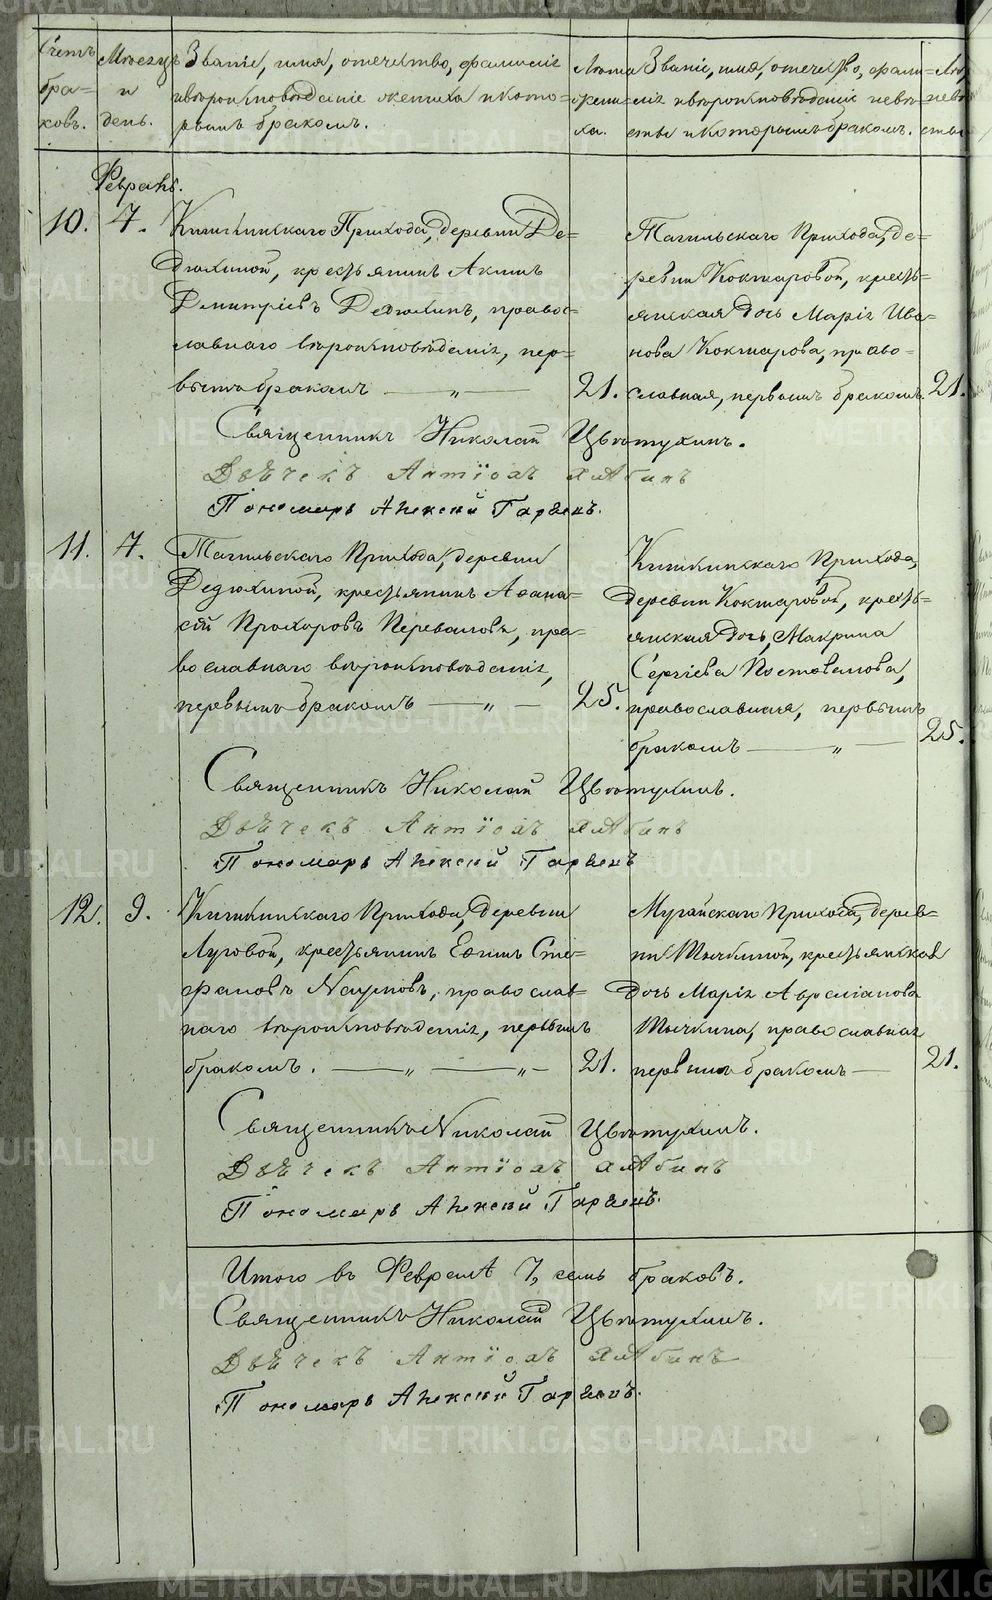 Счетъ бра-ковъ.
Мѣсяцъ и день.
Званіе, имя, отечество, фамилія
и вѣроисповѣданіе жениха и кото-
рымъ бракомъ.
Лѣта жени-ха.
Званіе, имя, отечество, фами-
лія и вѣроисповѣданіе невѣ-
сты и которымъ бракомъ.
Лѣта невѣ-сты
Февраль.
10. 7.
Кишкинскаго Прихода, деревни Де-
дюхиной, крестьянинъ Акимъ
Дмитріевъ Дедюхинъ, правос-
лавнаго вѣроисповѣданія, пер-
вымъ бракомъ — „ — 21.
Тагильскаго Прихода, де-
ревни Кокшаровой, кресть-
янская дочь Марія Ива-
нова Кокшарова, право-
славная, первымъ бракомъ. 21.
Священникъ Николай Цвѣтухинъ.
Дьячекъ Антіохъ
Пономарь Алексѣй
11. 7.
Тагильскаго Прихода, деревни
Дедюхиной, крестьянинъ Аѳана-
сій Прохоровъ Переваловъ, пра-
вославнаго вѣроисповѣданія,
первымъ бракомъ — „ — 25.
Кишкинскаго Прихода,
деревни Кокшаровой, кресть-
янская дочь, Макрина
Сергіева Постовалова,
православная, первымъ
бракомъ — „ — 25.
Священникъ Николай Цвѣтухинъ.
Дьячекъ Антіохъ
Пономарь Алексѣй
12. 9.
Кишкинскаго Прихода, деревни
Луговой, крестьянинъ Ефимъ Сте-
фановъ Наумовъ, православ-
наго вѣроисповѣданія, первымъ
бракомъ. — „ — „ — 21.
Мугайскаго Прихода, дерев-
ни Тычкиной, крестьянская
дочь Марія Аврамова
Тычкина, православная
первымъ бракомъ — 21.
Священникъ Николай Цвѣтухинъ.
Дьячекъ Антіохъ
Пономарь Алексѣй
Итого въ Февралѣ 7, семь браковъ.
Священникъ Николай Цвѣтухинъ.
Дьячекъ Антіохъ
Пономарь Алексѣй
METRIKI.GASO-URAL.RU